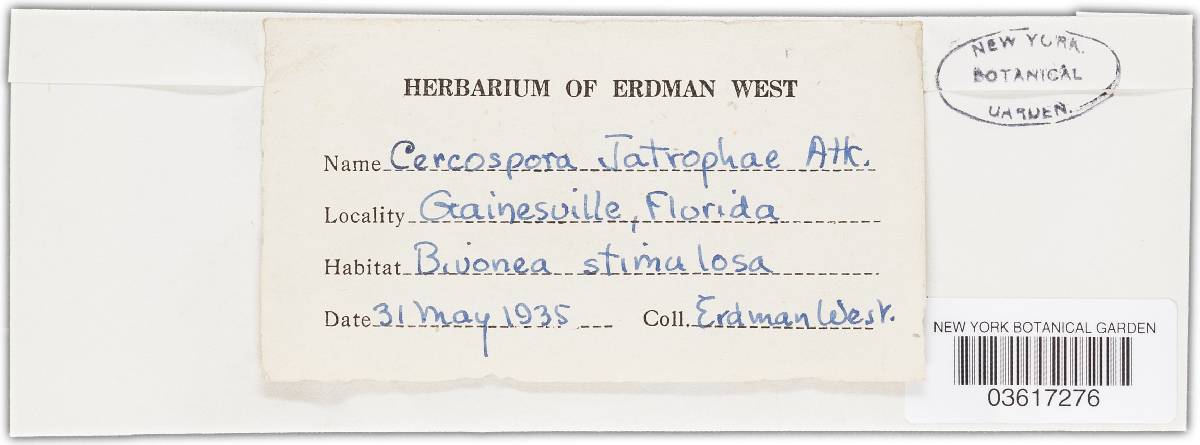 HERBARIUM OF ERDMAN WEST
Name Cercospora Jatrophae Atk.
Locality Gainesville, Florida
Habitat Bivonea stimulosa
Date 31 May 1935 Coll. Erdman West.
NEW YORK
BOTANICAL
GARDEN.
NEW YORK BOTANICAL GARDEN
03617276